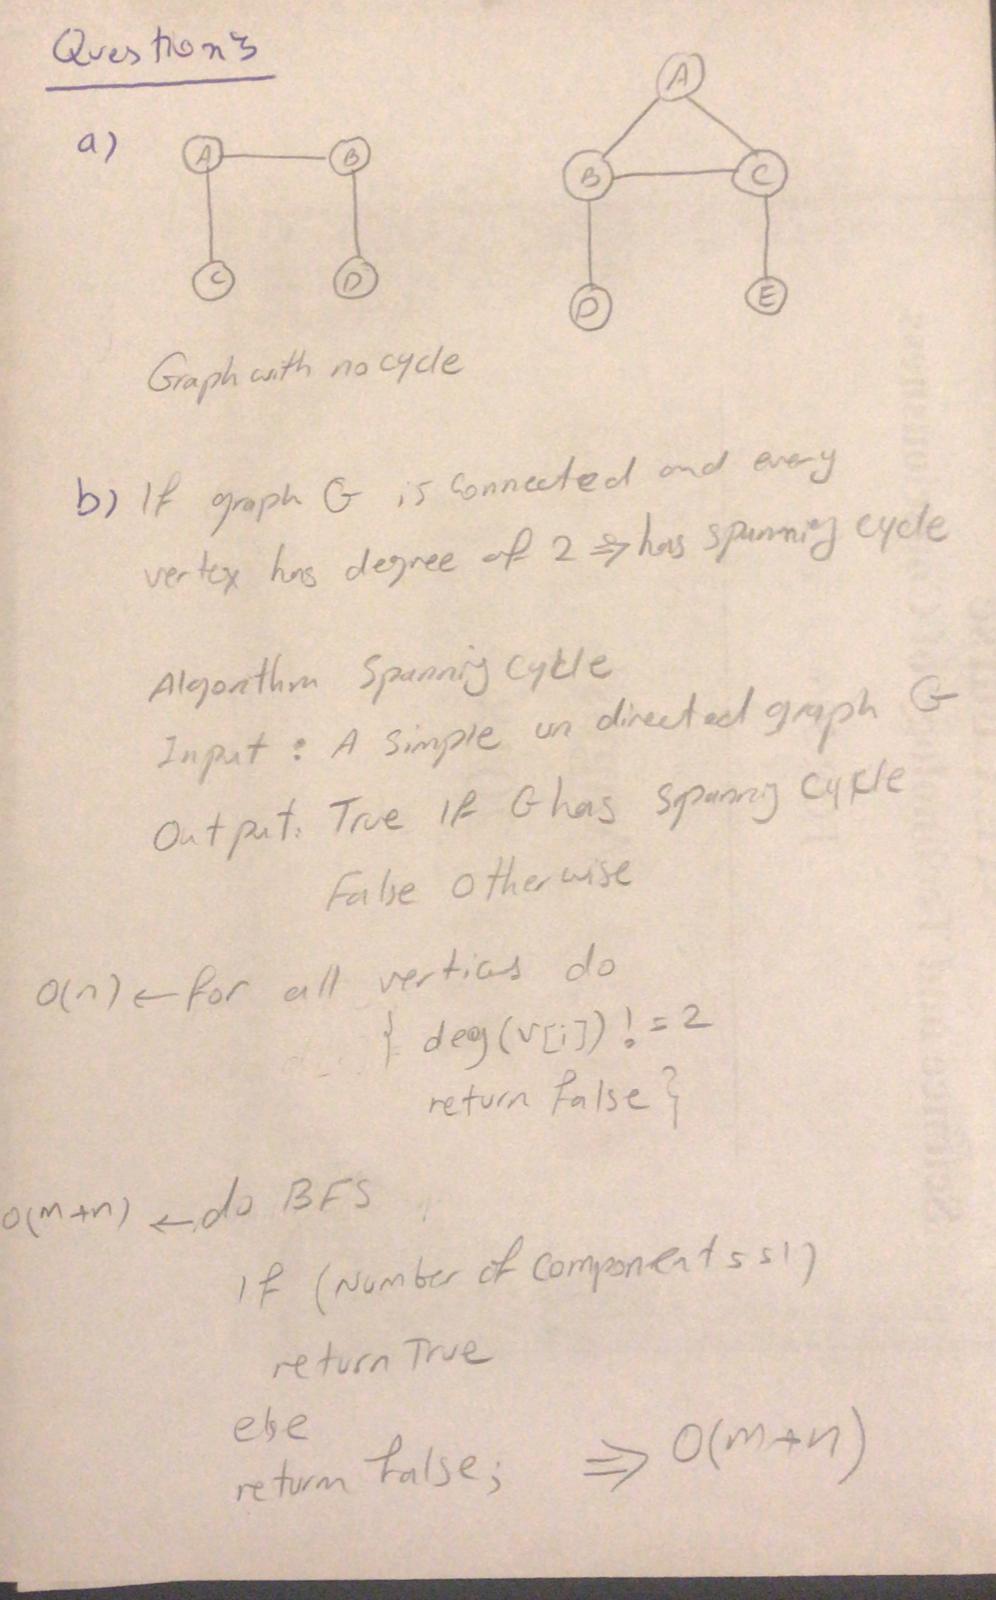 Question 3
a)
A B
C D
A
B C
D E
Graph with no cycle
b) If graph G is connected and every
vertex has degree of 2 ⇒ has spanning cycle
Algorithm Spannig cycle
Input : A simple undirected graph G
Output: True If G has spannig cycle
False otherwise
O(n) ← for all vertices do
{ deg(v[i]) != 2
return false }
O(m+n) ← do BFS
If (Number of components == 1)
return True
else
return false; ⇒ O(m+n)